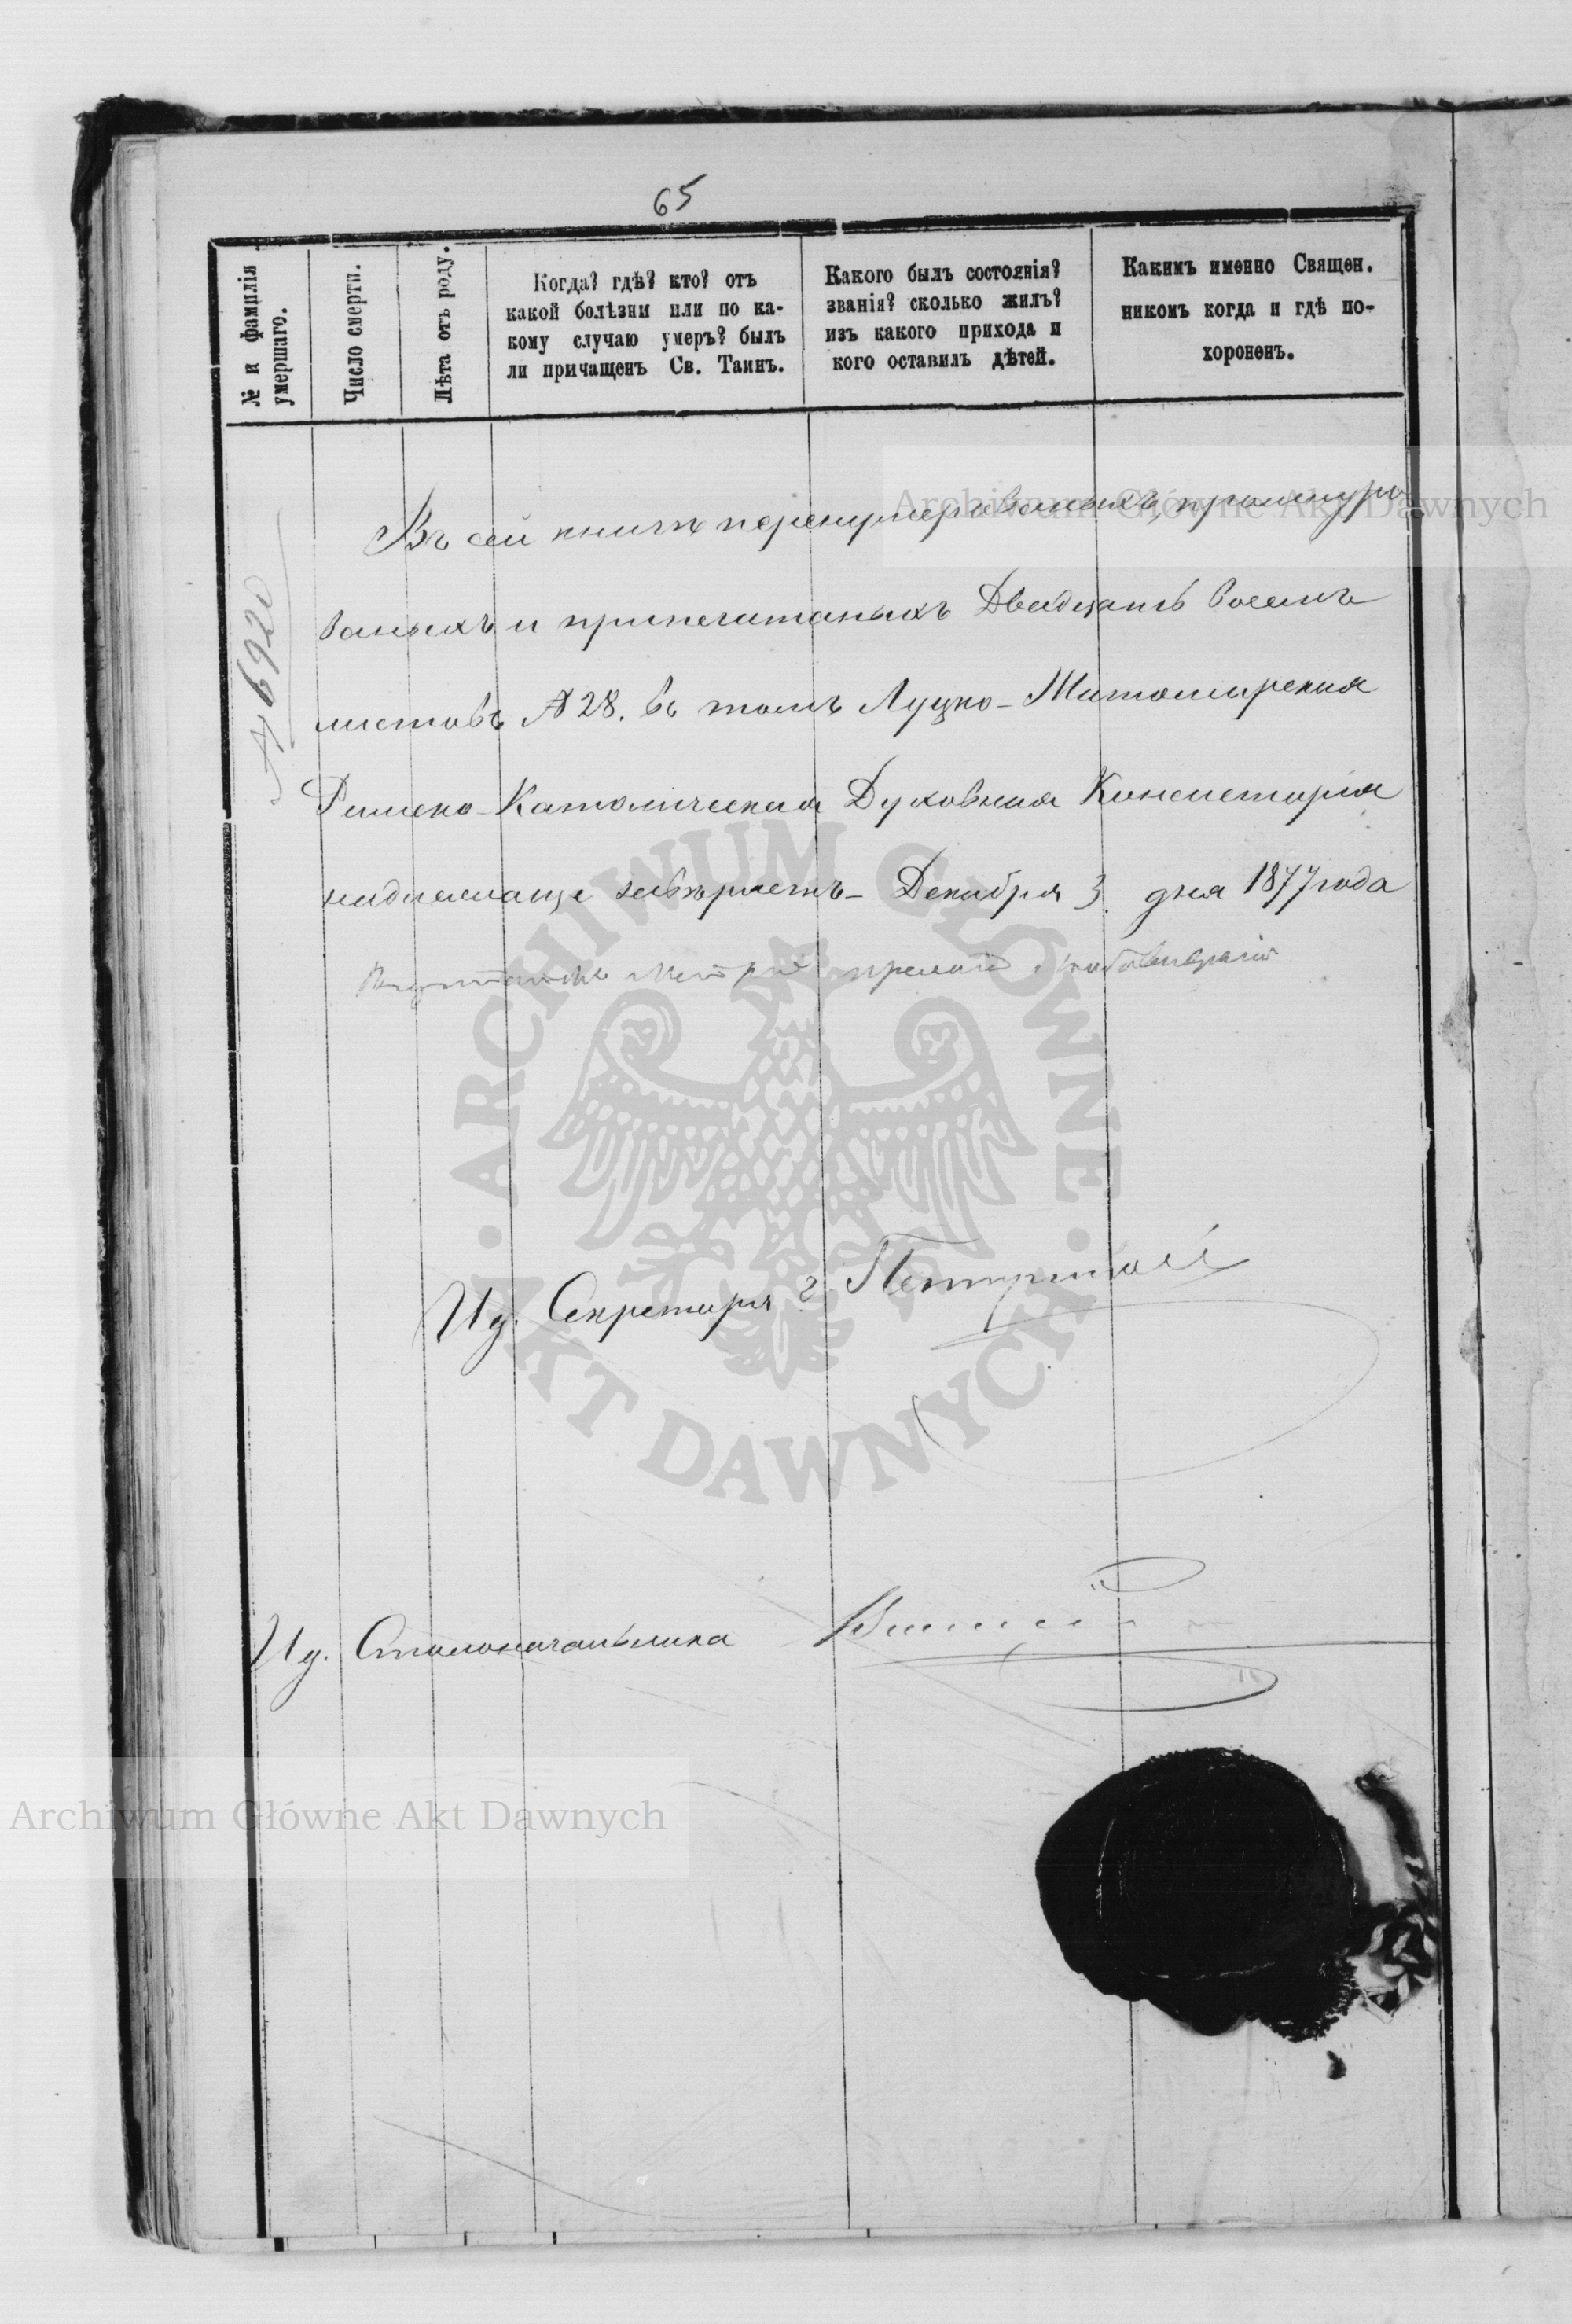 65
№ и фамилія
умершаго.
Число смерти.
Лѣта отъ роду.
Когда? гдѣ? кто? отъ
какой болѣзни или по ка-
кому случаю умеръ? былъ
ли причащенъ Св. Таинъ.
Какого былъ состоянія?
званія? сколько жилъ?
изъ какого прихода и
кого оставилъ дѣтей.
Какимъ именно Священ.
никомъ когда и гдѣ по-
хороненъ.
Въ сей книгѣ перенумерованыхъ, прошнуро
ваныхъ и припечатаныхъ Двадцать восемь
листовъ № 28. въ томъ Луцко-Житомирская
Римско-Католическая Духовная Консисторія
надлежаще завѣряетъ – Декабря 3. дня 1877 года
№ 6920
Ид. Секретаря
Ид. Столоначальника
Archiwum Główne Akt Dawnych
ARCHIWUM GŁÓWNE AKT DAWNYCH
Archiwum Główne Akt Dawnych